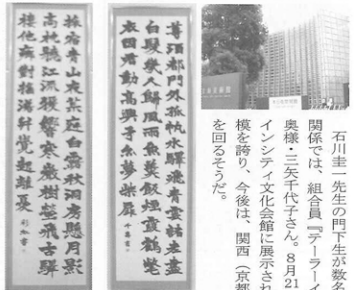 石川圭一先生の門下生が数名
関係では、組合員『テーラーイ
奥様・三矢千代子さん。8月21
インシティ文化会館に展示され
模を誇り、今後は、関西（京都
を回るそうだ。
尊酒都門外孤帆水驛飛青雲諸老盡
白髮幾人歸風雨魚羹飯煙霞鶴氅
衣因君動高興予亦夢柴扉
旅宿青山夜荒庭白露秋洞房懸月影
高枕聽江流猿響寒巖樹螢飛古驛
樓他鄉對搖落并覺起離憂